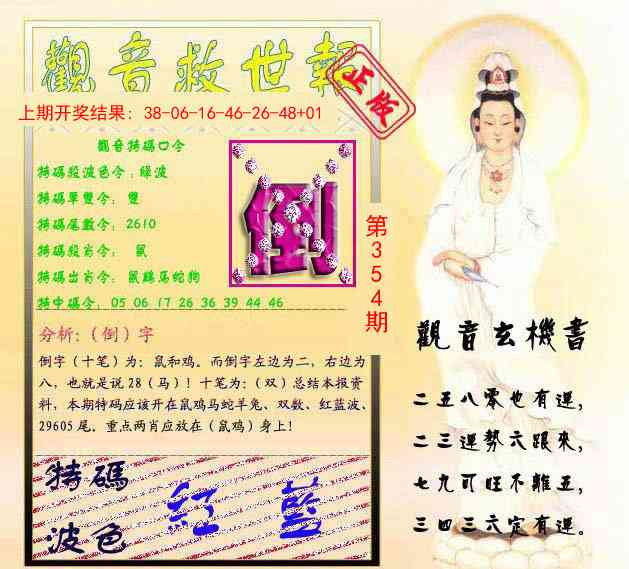 觀音救世報
正版
上期开奖结果：38-06-16-46-26-48+01
觀音特碼口令
特碼殺波色令：綠波
特碼單雙令：雙
特碼尾數令：2610
特碼殺肖令：鼠
特碼出肖令：鼠鷄马蛇狗
特中碼令：05 06 17 26 36 39 44 46
倒
第354期
分析：（倒）字
倒字（十笔）为：鼠和鸡。而倒字左边为二，右边为
八，也就是说28（马）！十笔为：（双）总结本报资
料，本期特码应该开在鼠鸡马蛇羊兔、双数、红蓝波、
29605尾。重点两肖应放在（鼠鸡）身上！
特碼
波色
紅 藍
觀音玄機書
二五八零也有運，
二三運勢六跟來，
七九可旺不離五，
三四三六定有運。